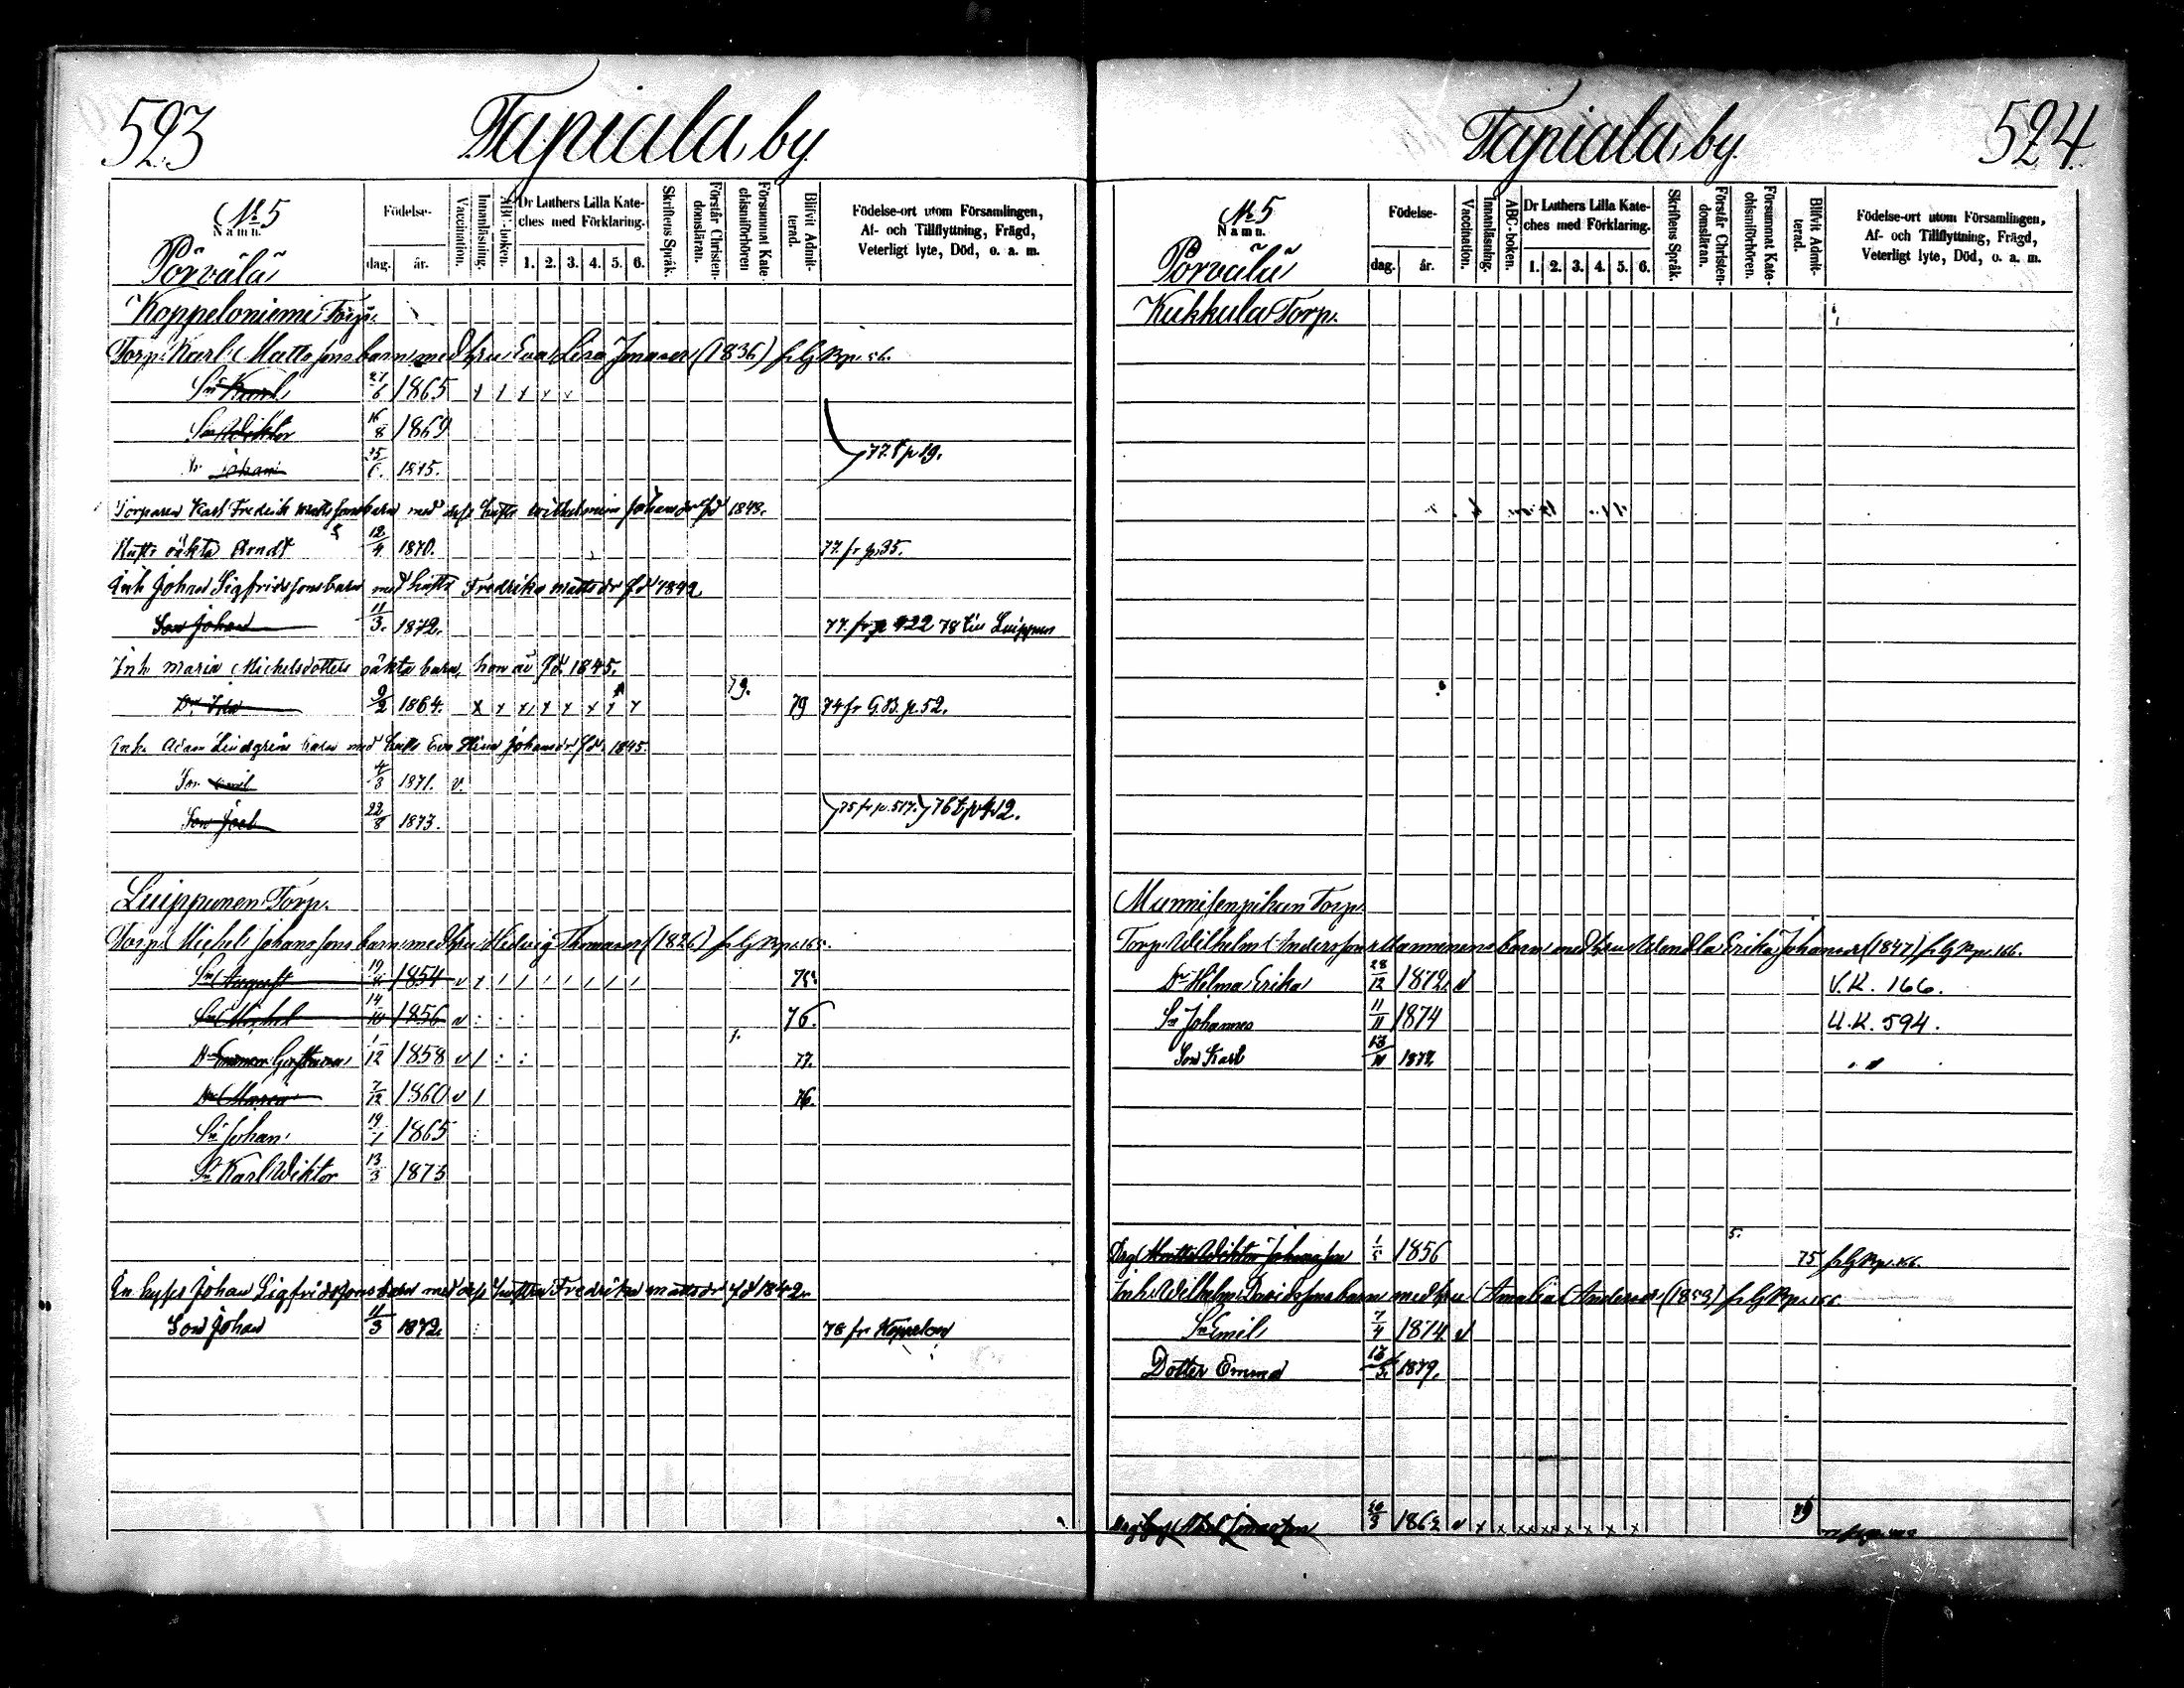 523 Tapiala by
No 5
Namn.
Födelse-
dag. år.
Vaccination.
Innanläsning.
ABC-boken.
Dr Luthers Lilla Kate-
ches med Förklaring.
1. 2. 3. 4. 5. 6.
Skriftens Språk.
Förstår Christen-
domsläran.
Försummat Kate-
chismiförhören
Blifvit Admit-
terad.
Födelse-ort utom Församlingen,
Af- och Tillflyttning, Frägd,
Veterligt lyte, Död, o. a. m.
Pörvälä
Koppeloniemi Torp.
Torp. Karl Mattssons barn med hru Eva Lisa (1836)
Sn Karl 27/6 1865
Sn Wiktor 16/8 1869
Johan 25/6 1875. 77 t p 19.
Torparen Karl Fredrik barn med dess hustru Wilhelmina Johansdr fd 1843.
Hustr oäkta 12/4 1870. 77 fr p. 35.
Inh Johan Sigfridssons barn med hustr Fredrika Mattsdr fd 1842
Son Johan 11/3 1872. 77 fr p 422 78 till Luippun
Inh Maria Michelsdotters oäkta barn, hon är fd. 1845.
Dr. Ida 9/2 1864. x x x x x x x x 79. 79 74 fr G.B. p. 52.
Inh. Adam Lindgrens barn med hustr Eva Stina Johansdr fd. 1845.
Son Emil 4/3 1871. v.
Son Joel 22/8 1873. 75 fr p. 517. 76 t p 412.
Luippunen Torp.
Torp. Michel Johanssons barn med hru Hedvig Thomasdr (1826) fr G B p. 165.
Sn August 19/4 1854 v 75.
Sn Michel 14/10 1856 v 76.
Dr Gustava 1/12 1858 v 1. 77.
Dr Maria 7/12 1860 v 76.
Sn Johan 19/1 1865
Sn Karl Wiktor 13/3 1873
Johan Sigfridssons barn med dess hustru Fredrika Mattsdr fd 1842
Son Johan 11/3 1872. 78 fr Koppelon
Tapiala by. 524.
No 5
Namn.
Födelse-
dag. år.
Vaccination.
Innanläsning.
ABC-boken.
Dr Luthers Lilla Kate-
ches med Förklaring.
1. 2. 3. 4. 5. 6.
Skriftens Språk.
Förstår Christen-
domsläran.
Försummat Kate-
chismiförhören.
Blifvit Admit-
terad.
Födelse-ort utom Församlingen,
Af- och Tillflyttning, Frägd,
Veterligt lyte, Död, o. a. m.
Pörvälä
Kukkula Torp.
Munnisenpihan Torp.
Torp. Wilhelm Anderssons barn med hru Wendla Erika Johansdr (1847) fr G B p. 166.
Dr Helma Erika 28/12 1872 v V.K. 166.
Sn Johannes 11/11 1874 U.K. 594.
Son Karl
Drg Wiktor Johansson 1/5 1856 5. 75 fr G B p. 166.
Inh. Wilhelm Davidssons barn med hru Amalia Andersdr fr G B p. 166.
Sn Emil 7/4 1874 v
Dotter Emma 1879.
1862 v x x x x x x x x 79